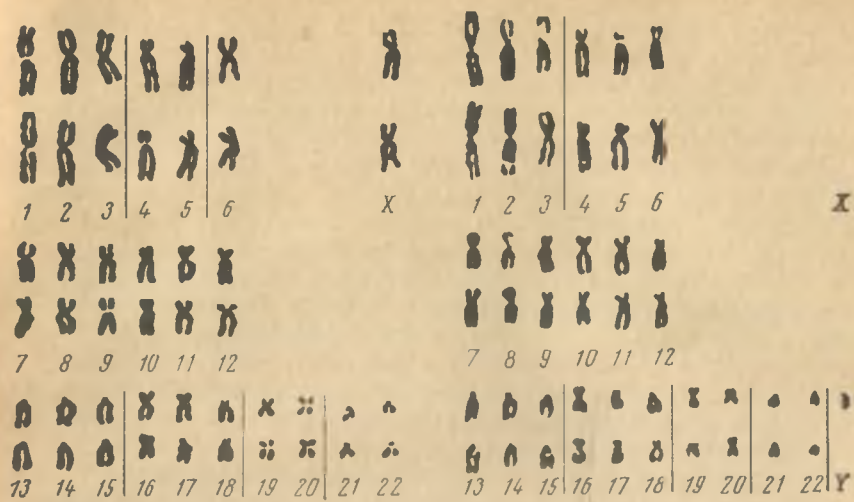 1 2 3 4 5 6 X
7 8 9 10 11 12
13 14 15 16 17 18 19 20 21 22
1 2 3 4 5 6 X
7 8 9 10 11 12
13 14 15 16 17 18 19 20 21 22 Y